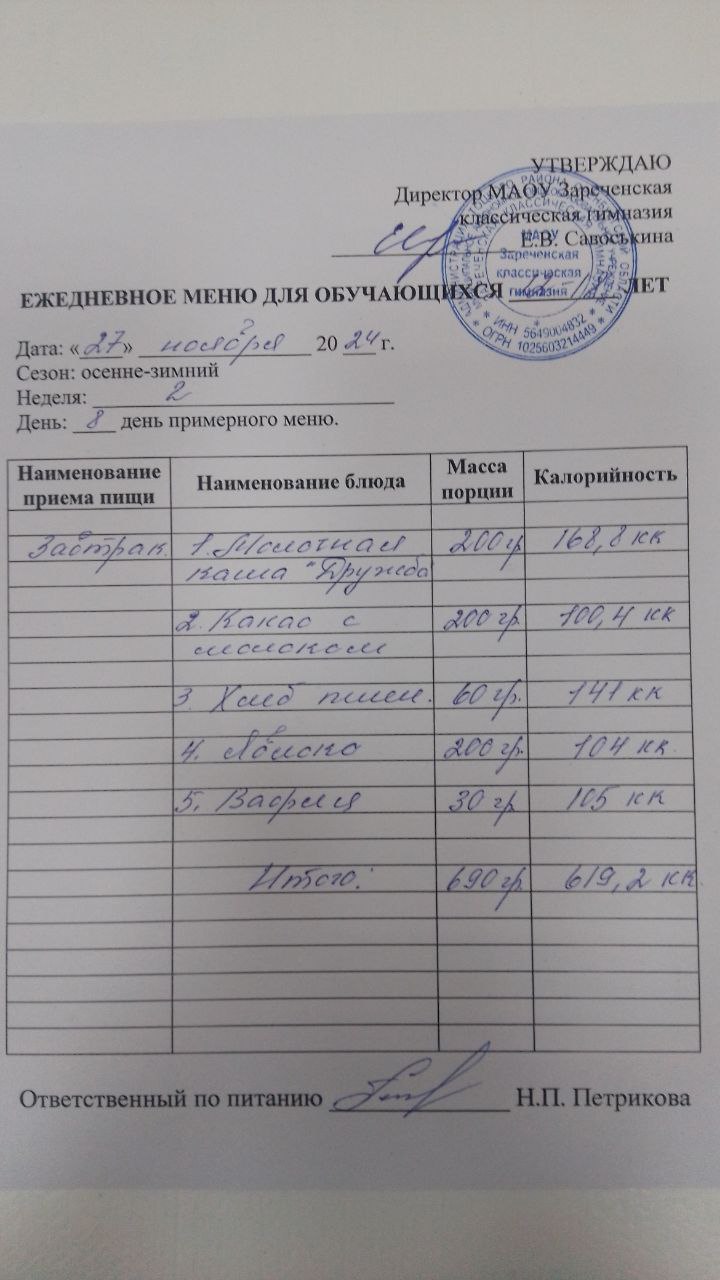 УТВЕРЖДАЮ
Директор МАОУ Зареченская
классическая гимназия
Е.В. Савоськина
МАОУ
Зареченская
классическая
гимназия
* ИНН 5649004832 *
* ОГРН 1025603214449 *
ЕЖЕДНЕВНОЕ МЕНЮ ДЛЯ ОБУЧАЮЩИХСЯ ЛЕТ
Дата: «27» ноября 2024 г.
Сезон: осенне-зимний
Неделя: 2
День: 8 день примерного меню.
Наименование приема пищи Наименование блюда Масса порции Калорийность
Завтрак 1. Молочная 200 гр 168,8 кк
каша "Дружба"
2. Какао с 200 гр. 100,4 кк
молоком
3. Хлеб пшен. 60 гр. 141 кк
4. Яблоко 200 гр. 104 кк.
5. Вафля 30 гр 105 кк
Итого: 690 гр. 619,2 кк
Ответственный по питанию Н.П. Петрикова